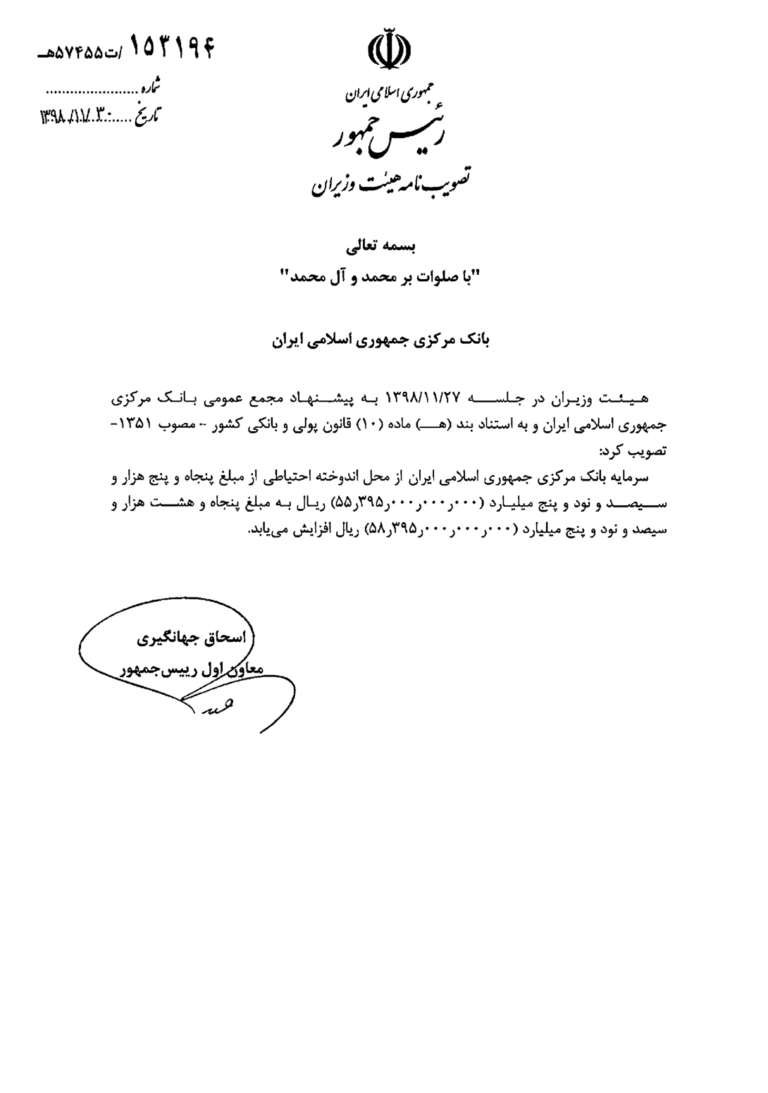 ۱۵۳۱۹۴ /ت۵۷۴۵۵هـ
شماره ......................
تاریخ ..... ۱۳۹۸/۱۱/۳۰
جمهوری اسلامی ایران
رئیس جمهور
تصویب نامه هیئت وزیران
بسمه تعالی
"با صلوات بر محمد و آل محمد"
بانک مرکزی جمهوری اسلامی ایران
هیـئـت وزیـران در جـلسـه ۱۳۹۸/۱۱/۲۷ بـه پیشـنهـاد مجمع عمومی بـانـک مرکزی
جمهوری اسلامی ایران و به استناد بند (هـ) ماده (۱۰) قانون پولی و بانکی کشور -- مصوب ۱۳۵۱-
تصویب کرد:
سرمایه بانک مرکزی جمهوری اسلامی ایران از محل اندوخته احتیاطی از مبلغ پنجاه و پنج هزار و
سـیصـد و نود و پنج میلیـارد (۵۵٫۳۹۵٫۰۰۰٫۰۰۰٫۰۰۰) ریـال بـه مبلغ پنجاه و هشـت هزار و
سیصد و نود و پنج میلیارد (۵۸٫۳۹۵٫۰۰۰٫۰۰۰٫۰۰۰) ریال افزایش می‌یابد.
اسحاق جهانگیری
معاون اول رییس‌جمهور